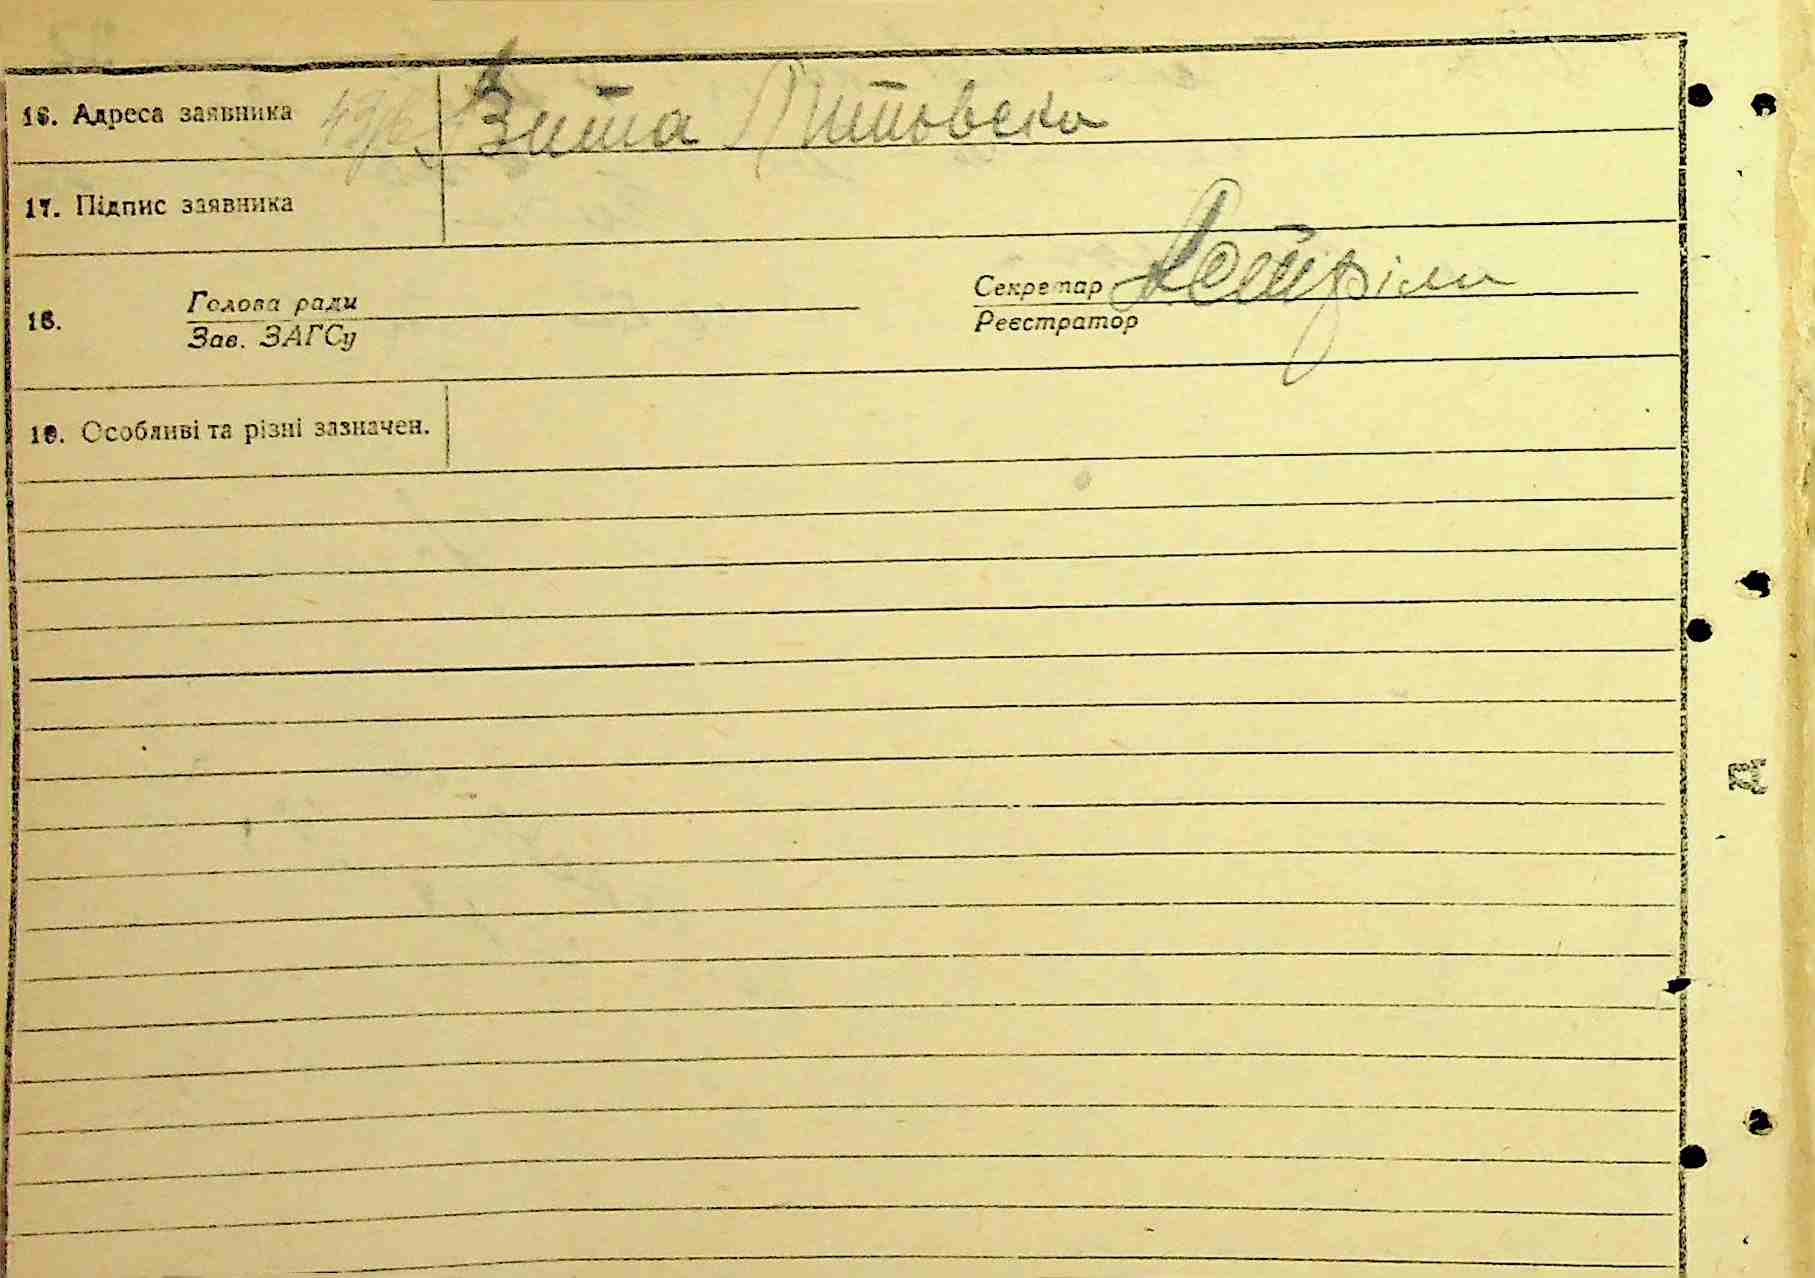 16. Адреса заявника Вита Литовска
17. Підпис заявника
18. Голова ради Секретар
Зав. ЗАГСу Реєстратор
19. Особливі та різні зазначен.